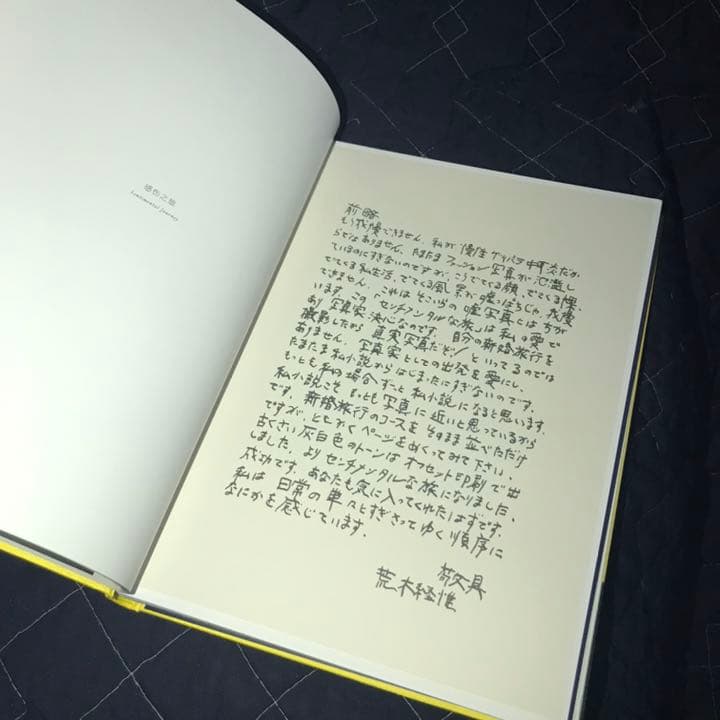 感伤之旅
Sentimental Journey
前略
もう我慢できません。私が慢性ゲリバラ中耳炎だか
らではありません。たまたまファッション写真が氾濫し
ているのにすぎないのですが、こうでてくる顔、でてくる裸、
でてくる私生活、でてくる風景が嘘っぱちじゃ、我慢
できません。これはそこいらの嘘写真とはちが
います。この「センチメンタルな旅」は私の愛で
あり写真家決心なのです。自分の新婚旅行を
撮影したから真実写真だぞ!といってるのでは
ありません。写真家としての出発を愛にし、
たまたま私小説からはじまったにすぎないのです。
もっとも私の場合ずーっと私小説になると思います。
私小説こそもっとも写真に近いと思っているから
です。新婚旅行のコースをそのまま並べただけ
ですが、ともかくページをめくってみて下さい。
古くさい灰白色のトーンはオフセット印刷で出
しました。よりセンチメンタルな旅になりました。
成功です。あなたも気に入ってくれたはずです。
私は日常の単々とすぎさってゆく順序に
なにかを感じています。
敬具
荒木経惟